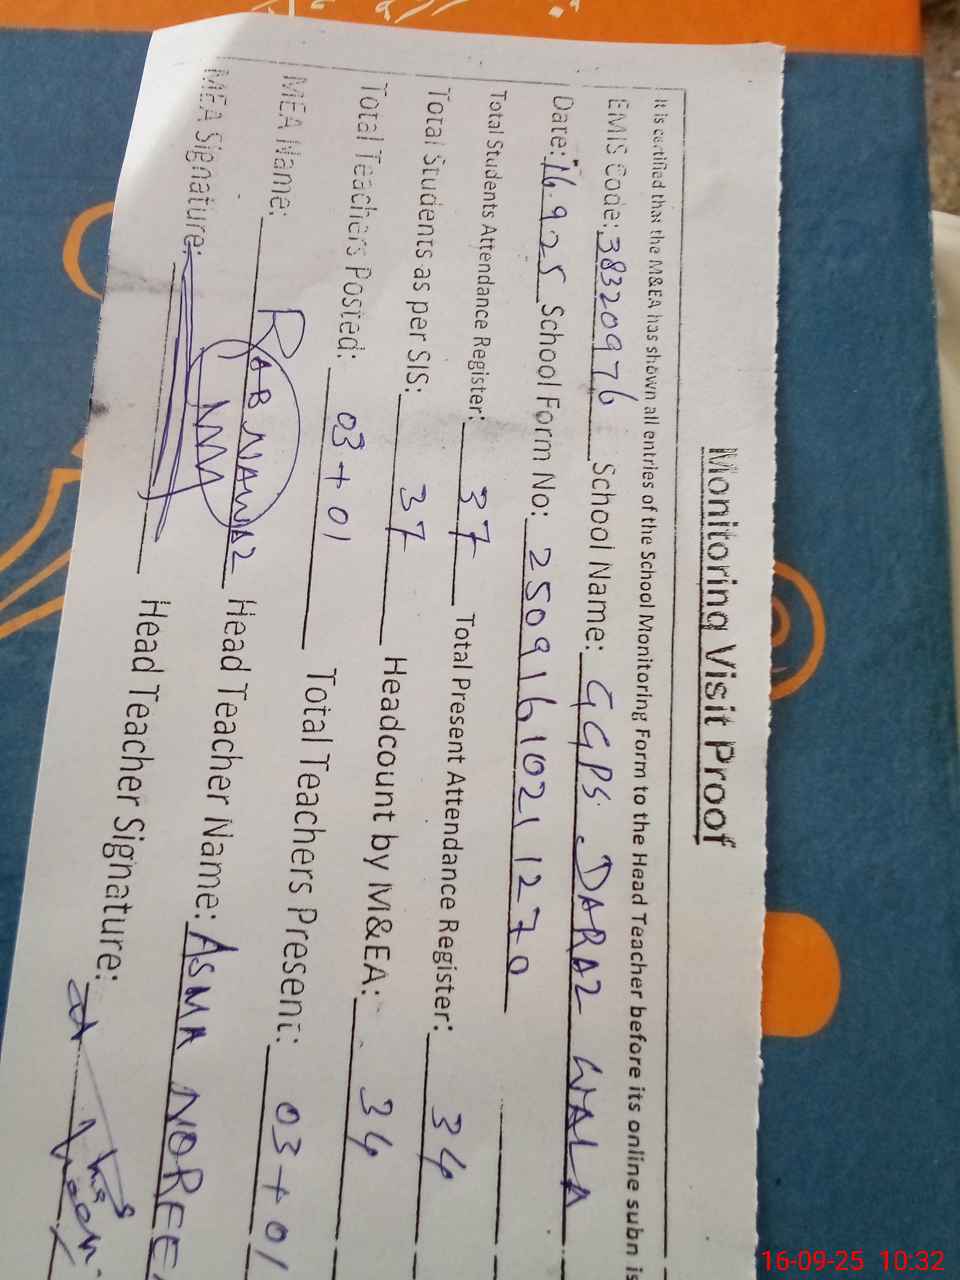 Monitoring Visit Proof
It is certified that the M&EA has shown all entries of the School Monitoring Form to the Head Teacher before its online subn is
EMIS Code: 38320976 School Name: GGPS DARAZ WALA
Date: 16.9.25 School Form No: 2509161021 1270
Total Students Attendance Register: 37 Total Present Attendance Register: 34
Total Students as per SIS: 37 Headcount by M&EA: 34
Total Teachers Posted: 03+01 Total Teachers Present: 03+01
MEA Name: RAB NAWAZ Head Teacher Name: ASMA NOREE
MEA Signature: Head Teacher Signature:
16-09-25 10:32